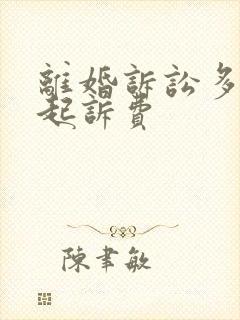 離婚訴訟多
起訴費
陳聿敏